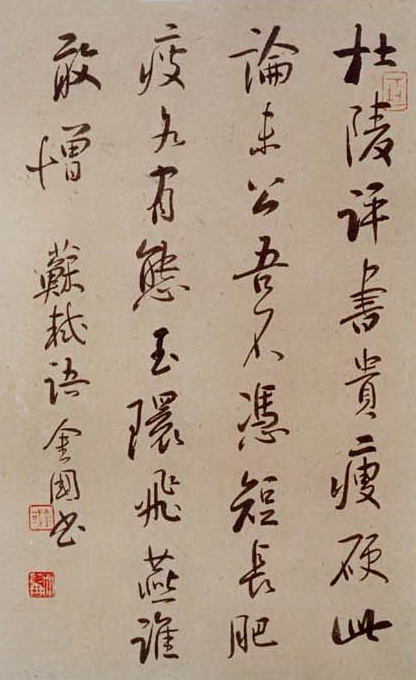 杜陵评書貴瘦硬此
論未公吾不憑短長肥
瘦各有態玉環飛燕誰
敢憎
蘇軾語 金國书